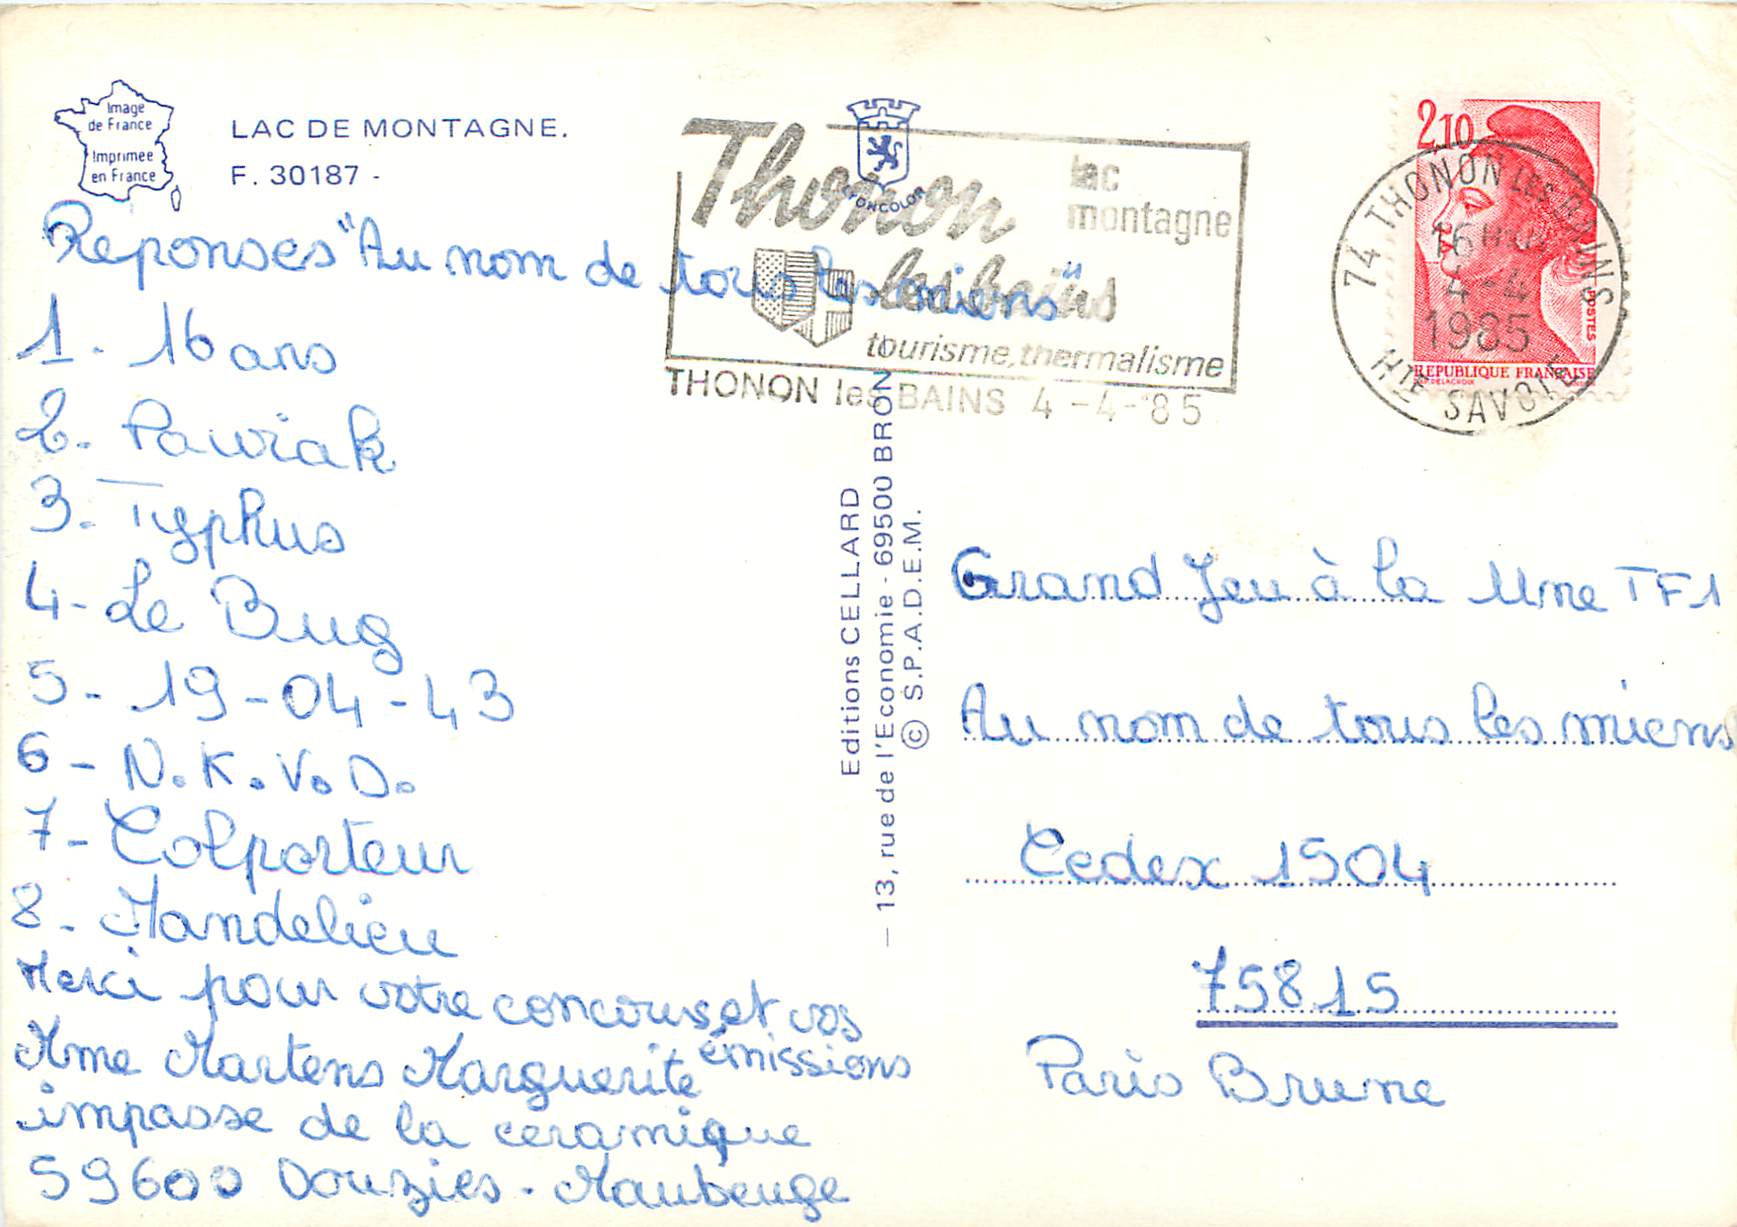 Image
de France
Imprimée
en France
LAC DE MONTAGNE.
F. 30187 -
Reponses "Au nom de tous les miens"
1. 16 ans
2. Pawiak
3. Typhus
4- Le Bug
5- 19-04-43
6- N.K.V.D.
7- Colporteur
8. Mandelieu
Merci pour votre concours, et vos
émissions
Mme Martens Marguerite
impasse de la ceramique
59600 Douzies. Maubeuge
Thonon
les bains
lac
montagne
tourisme, thermalisme
THONON les BAINS 4-4-85
Editions CELLARD
— 13, rue de l'Economie - 69500 BRON
© S.P.A.D.E.M.
2,10
POSTES
REPUBLIQUE FRANÇAISE
74 THONON LES BAINS
16H
4-4
1985
HTE SAVOIE
Grand Jeu à la Une TF1
Au nom de tous les miens
Cedex 1504
75815
Paris Brune